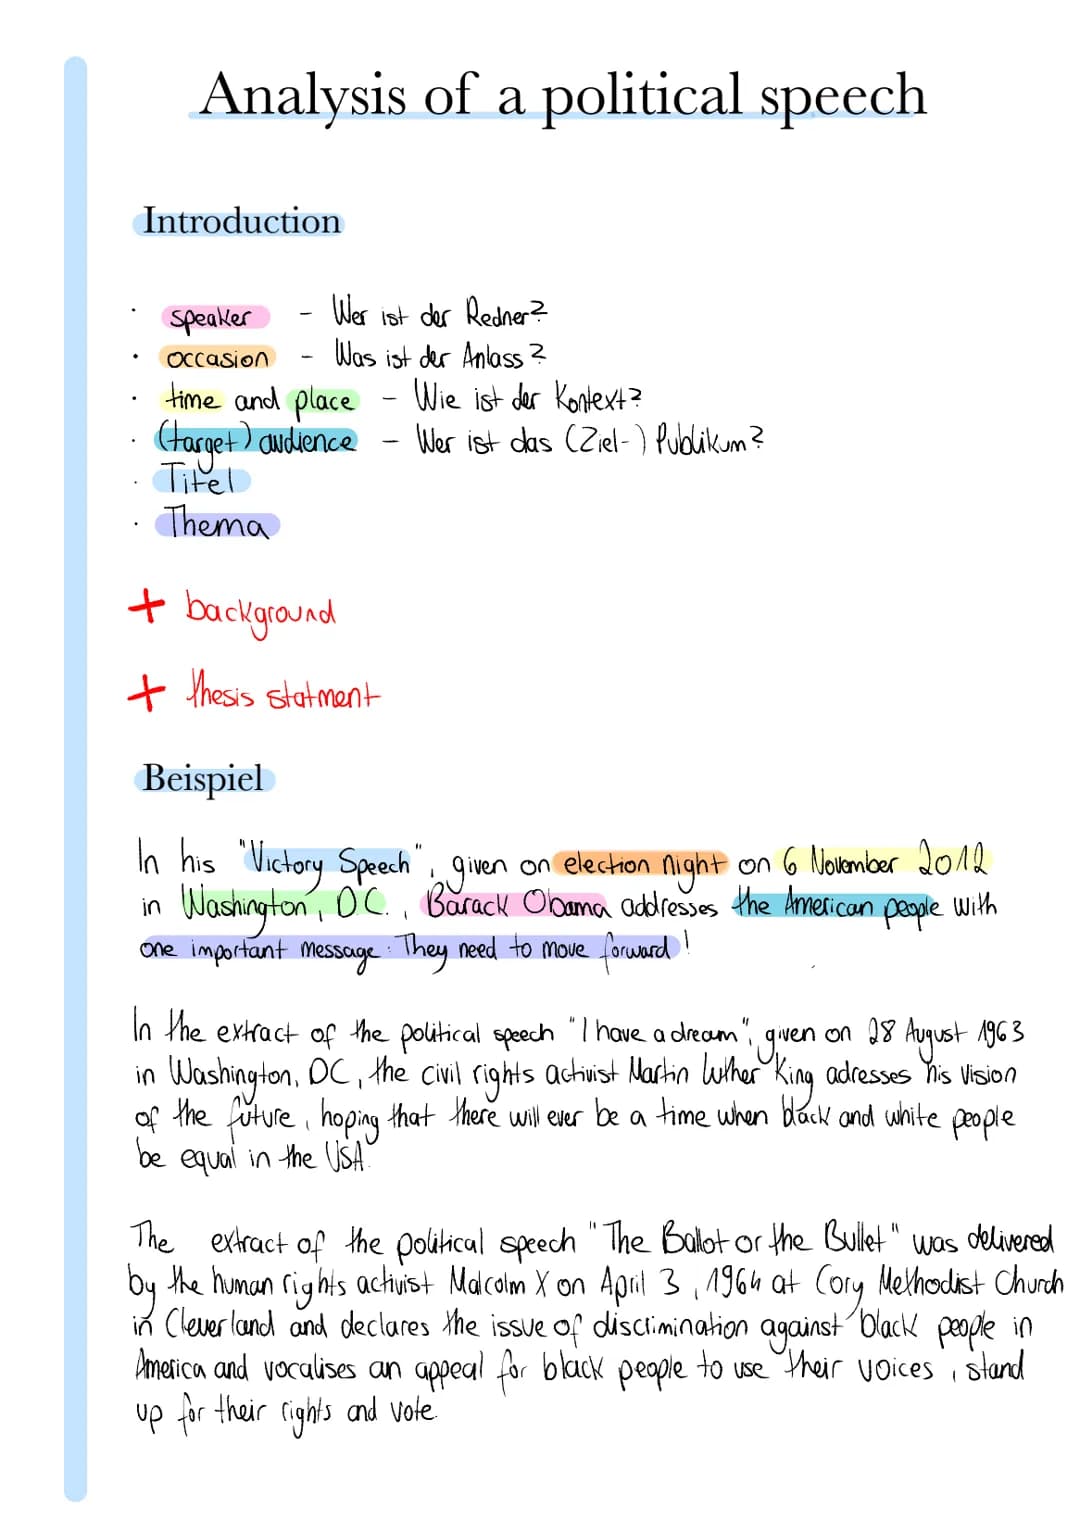 Analysis of a political speech
Introduction
· speaker - Wer ist der Redner?
· occasion - Was ist der Anlass?
· time and place - Wie ist der Kontext?
· (target) audience - Wer ist das (Ziel-) Publikum?
· Titel
· Thema
+ background
+ thesis statment
Beispiel
In his "Victory Speech", given on election night on 6 November 2012
in Washington, DC., Barack Obama addresses the American people with
one important message: They need to move forward!
In the extract of the political speech "I have a dream", given on 28 August 1963
in Washington, DC, the civil rights activist Martin Luther King adresses his vision
of the future, hoping that there will ever be a time when black and white people
be equal in the USA.
The extract of the political speech "The Ballot or the Bullet" was delivered
by the human rights activist Malcolm X on April 3, 1964 at Cory Methodist Church
in Cleverland and declares the issue of discrimination against black people in
America and vocalises an appeal for black people to use their voices, stand
up for their rights and vote.